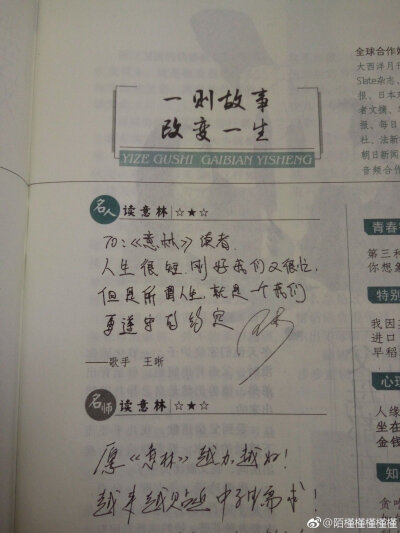 一则故事
改变一生
YIZE GUSHI GAIBIAN YISHENG
名人 读意林 ☆★☆
To:《意林》读者
人生很短,刚好我们又很忙,
但是所谓人生,就是一个我们
要遵守的约定
——歌手 王晰
名师 读意林 ☆★☆
愿《意林》越办越好!
越来越贴近中学生需求!
全球合作
大西洋月
Slate杂志、
报、日本
者文摘、
报、每日
社、法新
朝日新闻
音频合作
青春
第三种
你想象
特别
我因
进口
早稻
心理
人缘
坐在
金钱
知
贪吃
@陌槿槿槿槿槿